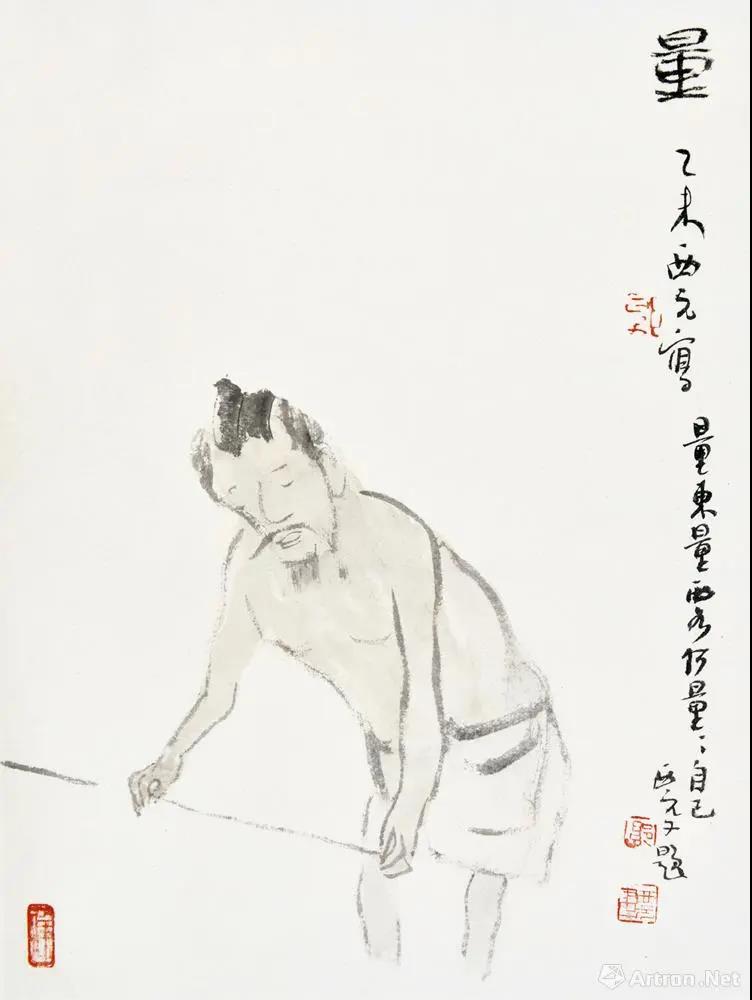 量
乙未西元寫
量東量西何量〻自己
西元又題
Artron.Net